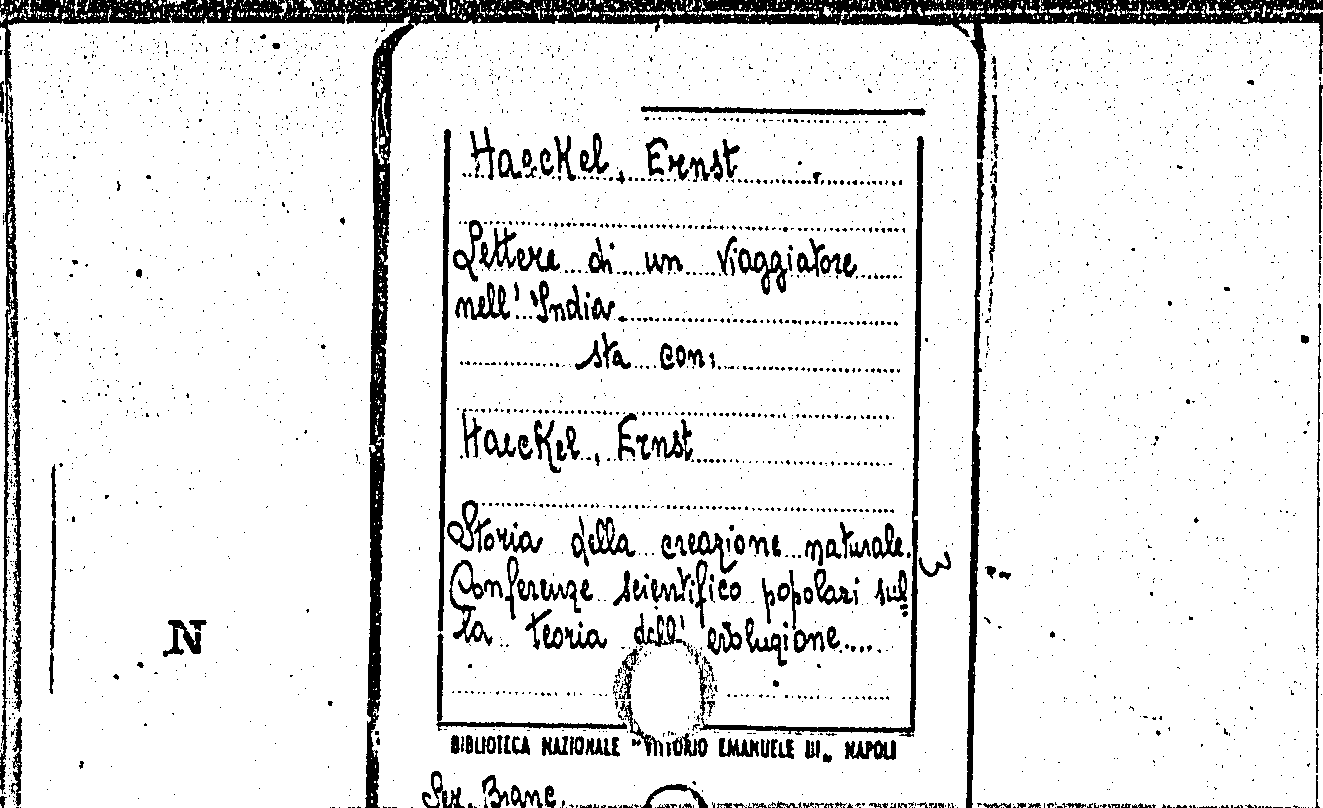 Haeckel, Ernst
Lettere di un viaggiatore
nell' India.
sta con:
Haeckel, Ernst
Storia della creazione naturale.
Conferenze scientifico popolari sul=
la teoria dell' evoluzione....
N
BIBLIOTECA NAZIONALE "VITTORIO EMANUELE III" NAPOLI